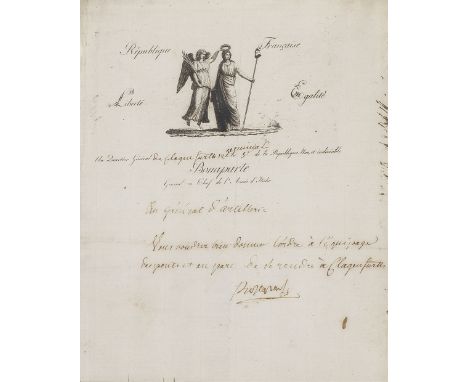 République Française
Liberté Egalité
Au Quartier Général de Clagenfurth le germinal 5e de la République Une et indivisible
Bonaparte
Général en Chef de l'Armée d'Italie
Au général d'artillerie
Vous voudrez bien donner l'ordre à l'équipage
des ponts et au parc de se rendre à Clagenfurth